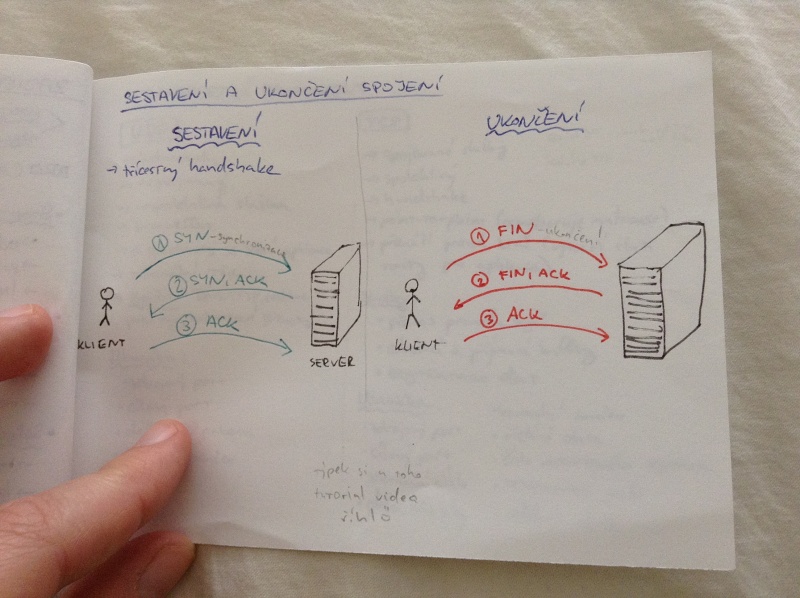 SESTAVENÍ A UKONČENÍ SPOJENÍ
SESTAVENÍ
→ třícestný handshake
① SYN - synchronizace
② SYN, ACK
③ ACK
KLIENT
SERVER
UKONČENÍ
① FIN - ukončení
② FIN, ACK
③ ACK
KLIENT
si u toho
tutorial videa